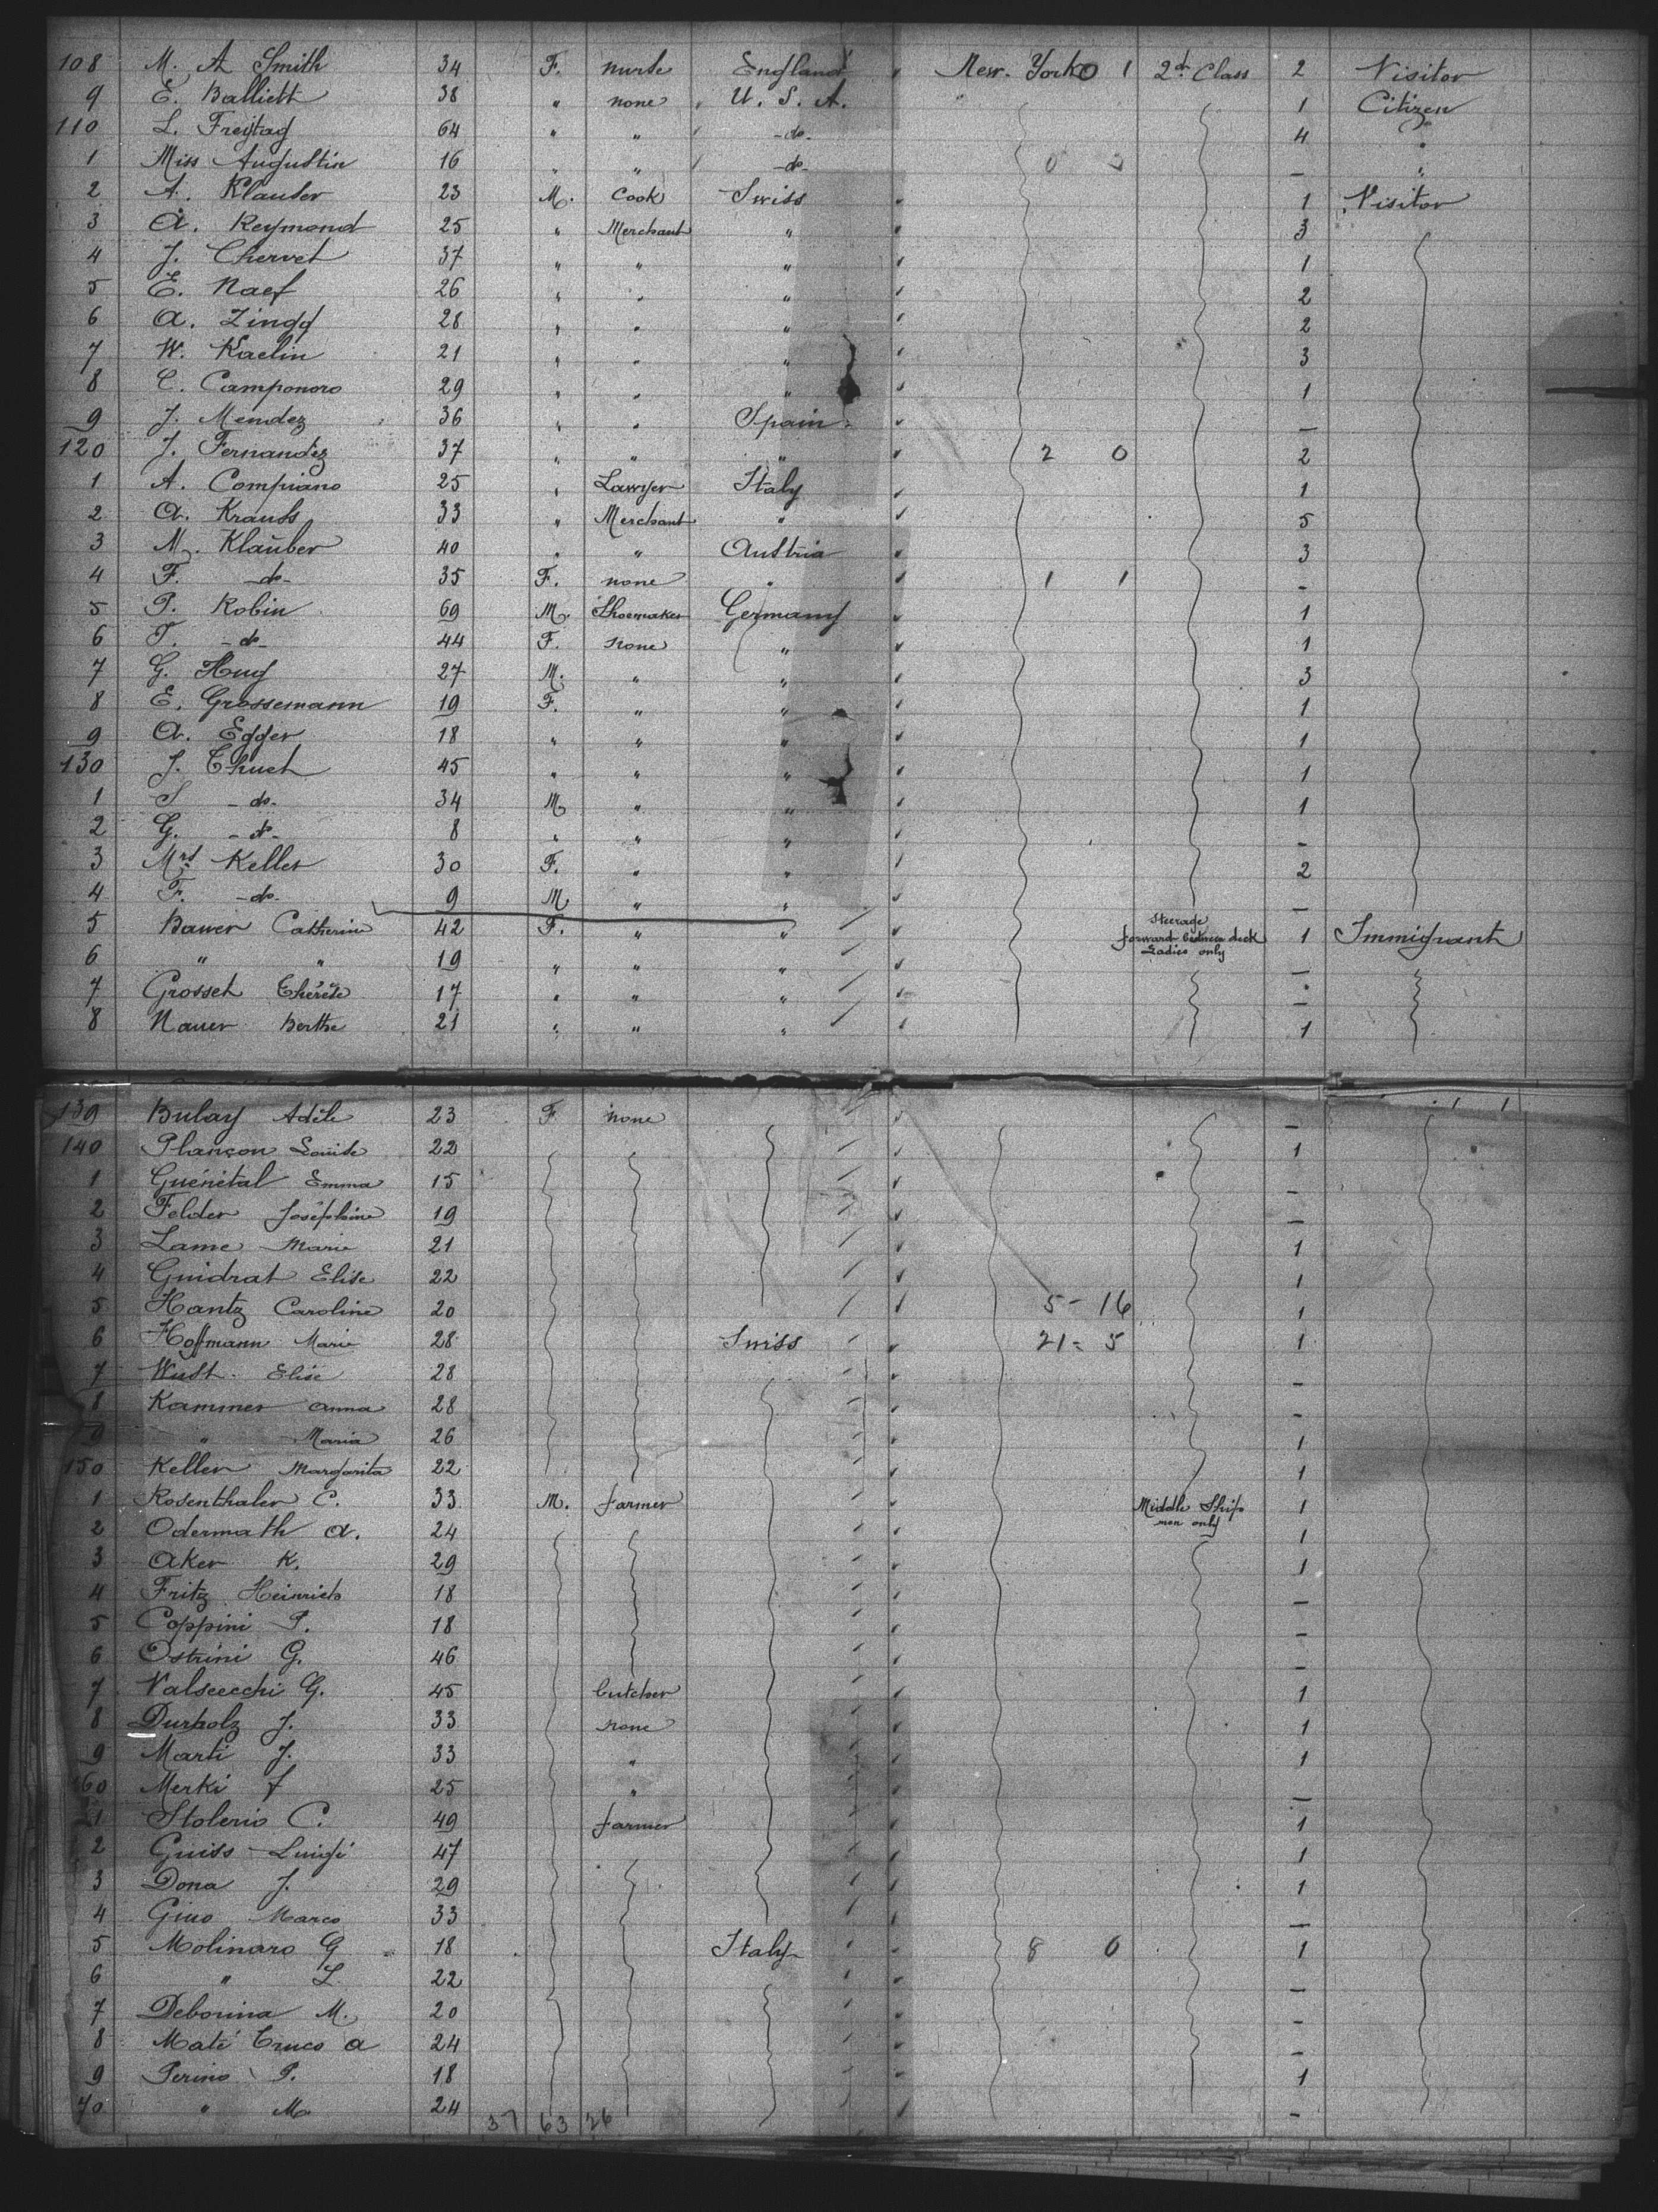 108 M. A Smith 34 F. nurse England New. York 0 1 2d Class 2 Visitor
9 E. Balliett 38 " none U. S. A. 1 Citizen
110 L. Freytag 64 " " -do- 4 "
1 Miss Augustin 16 " " -do- 0 3 — "
2 A. Klauser 23 M. Cook Swiss 1 Visitor
3 A. Reymond 25 " Merchant " 3
4 J. Chervet 37 " " " 1
5 E. Naef 26 " " " 2
6 A. Zingg 28 " " " 2
7 W. Kaelin 21 " " " 3
8 C. Camponoro 29 " " " 1
9 J. Mendez 36 " " Spain —
120 J. Fernandez 37 " " " 2 0 2
1 A. Compiano 25 " Lawyer Italy 1
2 A. Krauss 33 " Merchant " 5
3 M. Klauber 40 " " Austria 3
4 F. -do- 35 F. none " 1 1 -
5 P. Robin 69 M. Shoemaker Germany 1
6 T. -do- 44 F. none " 1
7 G. Hug 27 M. " " 3
8 E. Grossemann 19 F. " " 1
9 A. Egger 18 " " " 1
130 J. Thuet 45 " " " 1
1 S -do- 34 M " " 1
2 G. -do- 8 " " " -
3 Mrs Keller 30 F. " " 2
4 F. -do- 9 M " " —
5 Bauer Catherine 42 F. " " Steerage forward between deck Ladies only 1 Immigrant
6 " " 19 " " " —
7 Grosset Thérèse 17 " " " —
8 Nauer Berthe 21 " " " 1
139 Bulay Adèle 23 F none —
140 Plançon Louise 22 1
1 Guénetal Emma 15 -
2 Felder Joséphine 19 —
3 Lame Marie 21 1
4 Guidrat Elise 22 1
5 Hantz Caroline 20 5 - 16 1
6 Hoffmann Marie 28 Swiss 21 - 5 1
7 Wust Elise 28 -
8 Kammer Anna 28 -
9 " Maria 26 1
150 Keller Margarita 22 1
1 Rosenthaler C. 33 M. farmer Middle Ship men only 1
2 Odermath A. 24 1
3 Aker K. 29 1
4 Fritz Heinrich 18 -
5 Coppini P. 18 -
6 Ostrini G. 46 -
7 Valsecchi G. 45 butcher 1
8 Durholz J. 33 none 1
9 Marti J. 33 " 1
160 Merki J 25 " —
1 Stolerio C. 49 farmer 1
2 Guiss Luigi 47 1
3 Dona J. 29 1
4 Gino Marco 33 —
5 Molinaro G 18 Italy 8 0 1
6 " L. 22 -
7 Debonina M. 20 -
8 Maté Truco A 24 -
9 Perino P. 18 1
70 " M 24 -
37 63 26